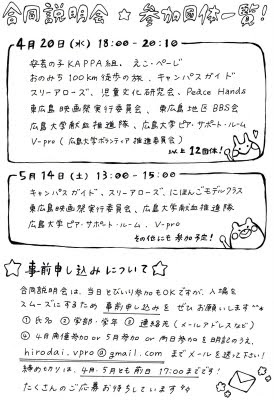 合同説明会☆参加団体一覧!
4月20日(水) 18:00-20:10
安芸の子KAPPA組、えこ・ぺーじ
おのみち100km徒歩の旅、キャンパスガイド
スリーアローズ、児童文化研究会、Peace Hands
東広島映画祭実行委員会、東広島地区BBS会
広島大学献血推進隊、広島大学ピア・サポート・ルーム
V-pro (広島大学ボランティア推進委員会)
以上12団体!
5月14日(土) 13:00-15:00
キャンパスガイド、スリーアローズ、にほんごモデルクラス
東広島映画祭実行委員会、広島大学献血推進隊
広島大学ピア・サポート・ルーム、V-pro
その他にも参加予定!
☆事前申し込みについて☆
合同説明会は、当日とびいり参加もOKですが、入場を
スムーズにするため事前申し込みをぜひお願いします^^*
①氏名 ②学部・学年 ③連絡先(メールアドレスなど)
④4月開催参加or5月参加or両日参加を明記のうえ、
hirodai.vpro@gmail.comまでメールを送って下さい!
締め切りは、4月・5月とも前日17:00までです!
たくさんのご応募お待ちしています